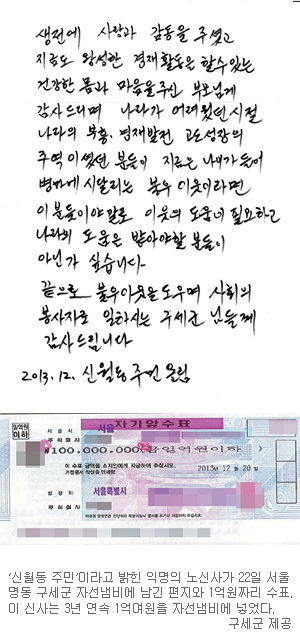 생전에 사랑과 감동을 주셨고
지금도 왕성한 경제활동은 할수있는
건강한 몸과 마음을 주신 부모님께
감사드리며 나라가 어려웠던 시절
나라의 부흥, 경제발전 고도성장의
주역이셨던 분들이 지금은 나이가 들어
병마에 시달리는 불우 이웃이라면
이 분들이야 말로 이웃의 도움이 필요하고
나라의 도움은 받아야할 분들이
아닌가 싶습니다
끝으로 불우이웃을 도우며 사회의
봉사자로 일하시는 구세군 님들께
감사드립니다
2013.12. 신월동 주민 올림
일억원
이하
자기앞수표
서울
₩100,000,000(일억원이하)
이 수표 금액을 소지인에게 지급하여 주십시오.
2013년 12월 20일
서울특별시
'신월동 주민'이라고 밝힌 익명의 노신사가 22일 서울
명동 구세군 자선냄비에 남긴 편지와 1억원짜리 수표.
이 신사는 3년 연속 1억여원을 자선냄비에 넣었다.
구세군 제공